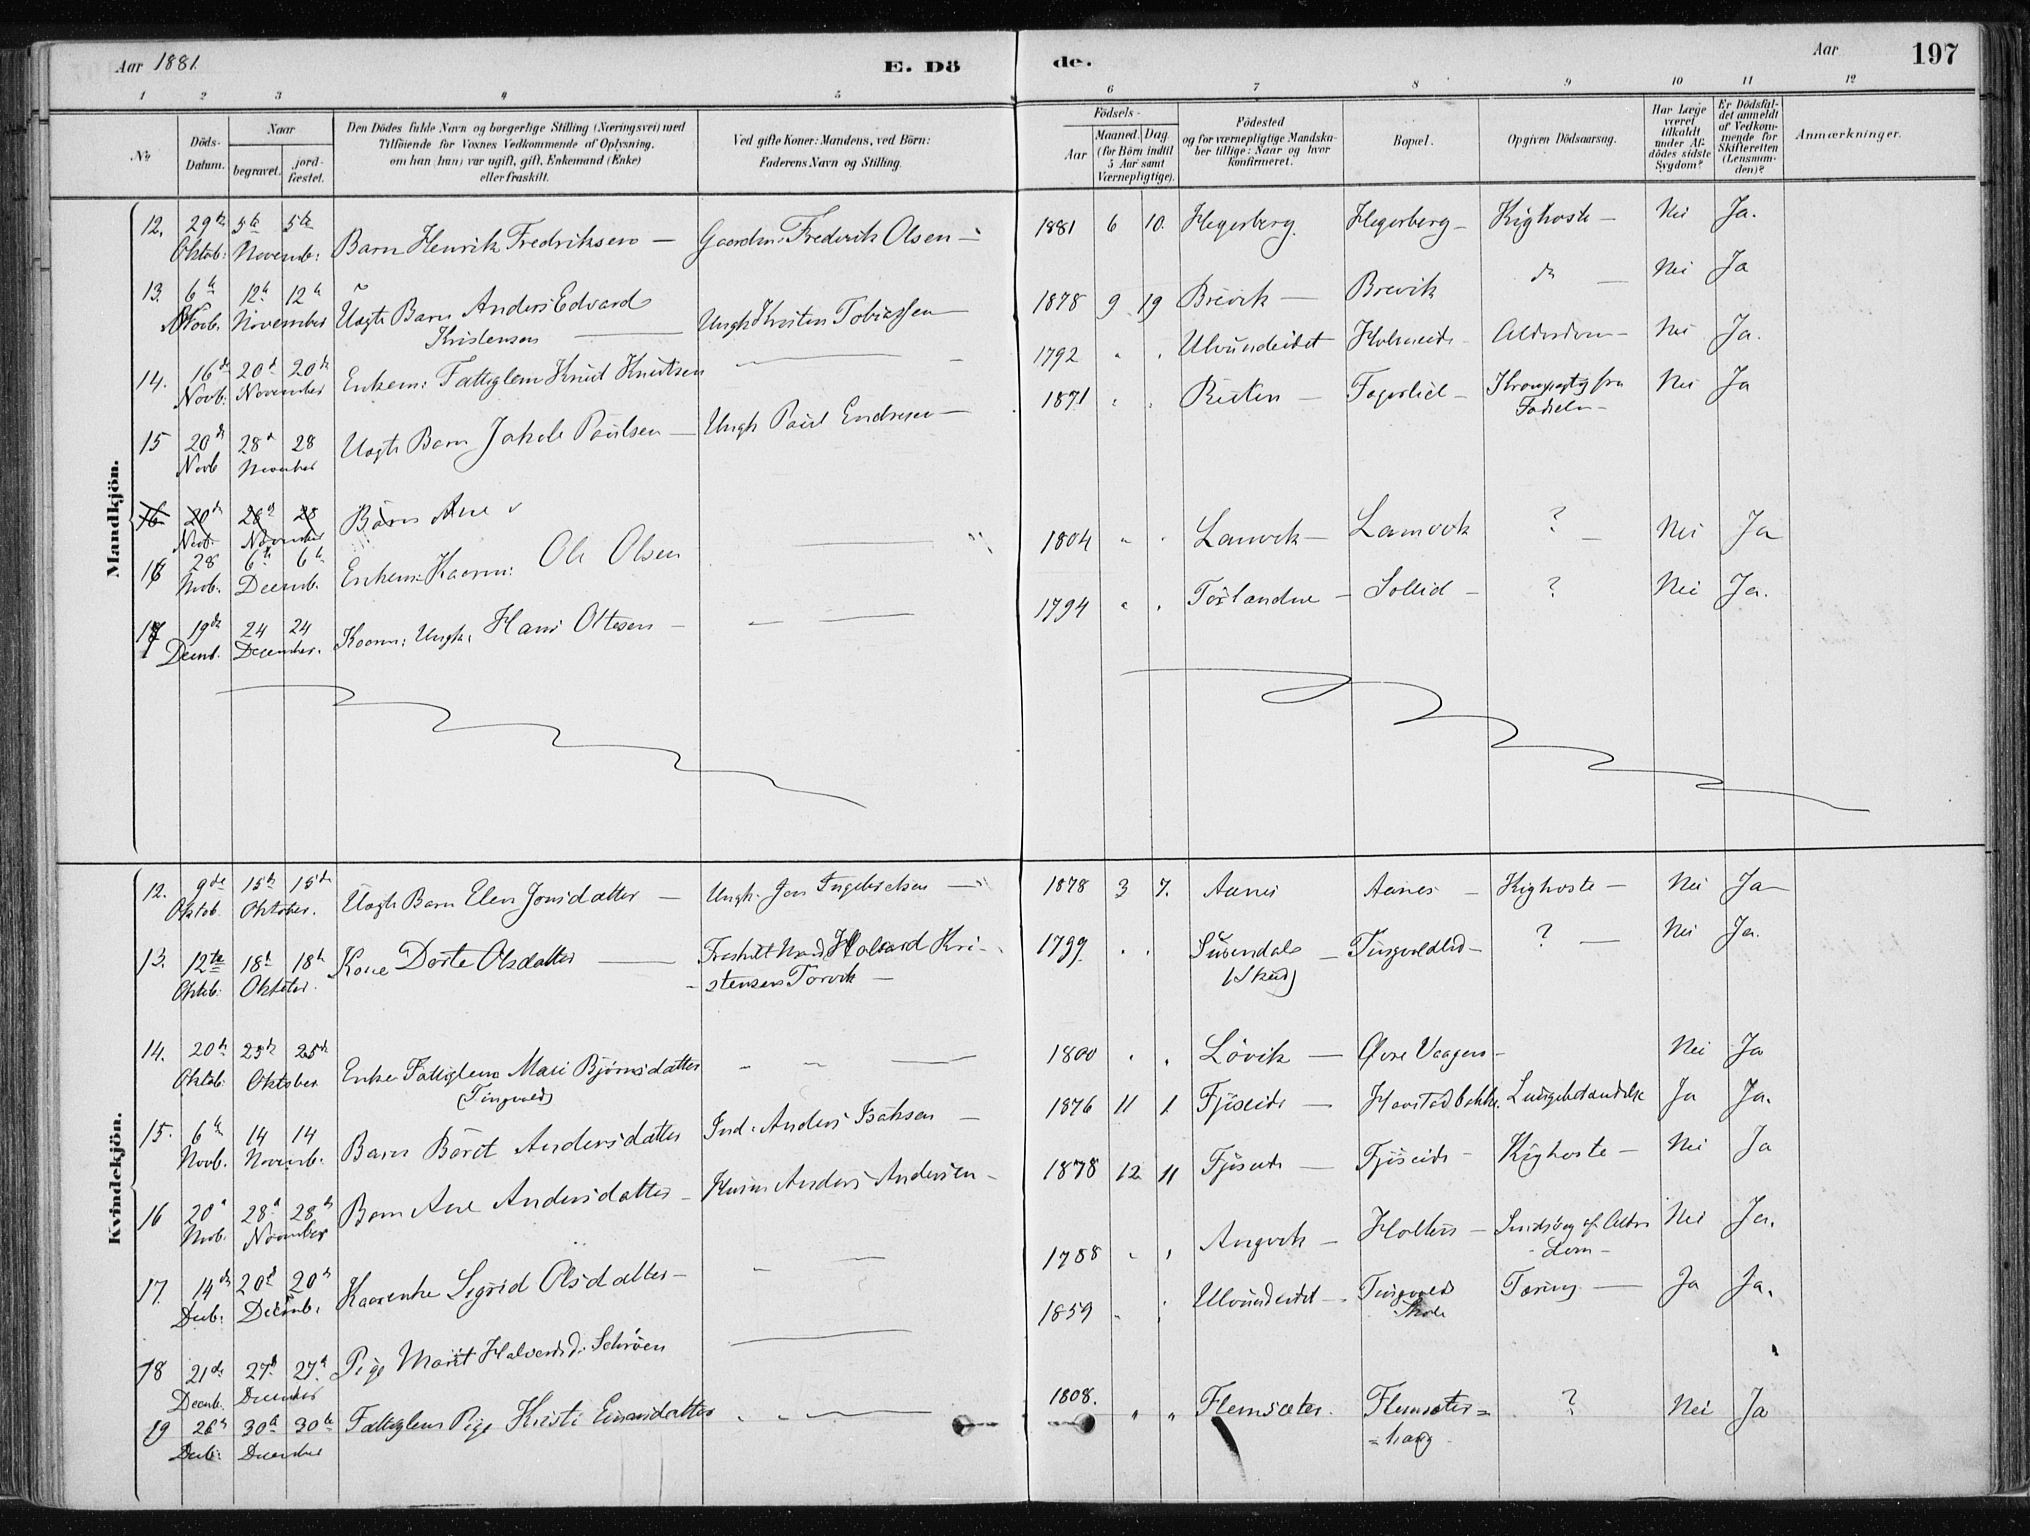 Aar 1881. E. Dö de. Aar 197
1 2 3 4 5 6 7 8 9 10 11 12
No
Döds-Datum.
Naar
begravet.
jord-fæstet.
Den Dödes fulde Navn og borgerlige Stilling (Næringsvei) med
Tilföiende for Voxnes Vedkommende af Oplysning,
om han (hun) var ugift, gift, Enkemand (Enke)
eller fraskilt.
Ved gifte Koner: Mandens, ved Börn:
Faderens Navn og Stilling.
Födsels-
Aar
Maaned. Dag.
(for Börn indtil
5 Aar samt
Værnepligtige).
Födested
og for værnepligtige Mandska-
ber tillige: Naar og hvor
konfirmeret.
Bopæl.
Opgiven Dödsaarsag.
Har Læge
været
tilkaldt
under Af-
dödes sidste
Sygdom?
Er Dödsfal-
det anmeldt
af Vedkom-
mende for
Skifteretten
(Lensman-
den)?
Anmærkninger.
Mandkjön.
12. 29de 5te 5te Barn Henrik Fredriksen — Gaardm: Frederik Olsen — 1881 6 10. Hegerberg. Hegerberg — Kighoste — Nei Ja.
Oktob: Novemb:
13. 6te 12te 12te Uægte Barn Anders Edvard Ungk. Kristen Tobiassen 1878 9 19 Brevik — Brevik do — Nei Ja
Novb. November Kristensen
14. 16de 20de 20de Enkem: Fattiglem Knud Knudsen — 1792 " " Ulvundeidet Holmeide Alderdom — Nei Ja.
Novb: November
15 20de 28de 28 Uægte Barn Jakob Paulsen — Ungk. Paul Endresen — 1871 " " Ruten — Fagerlied — fra Nei Ja
Novb November Fødselen —
16 20de 28de 28 Barn Ane
Nov. November
16 28 6te 6te Enkem: Kaarm: Ole Olsen — 1804 " " Lanvik — Lanvik ? — Nei Ja
Novb. Decemb.
17 19de 24 24 Kaarm: Ungk: Hans Oltesen — 1794 " " — Sollid — ? Nei Ja.
Decemb. December.
Kvindekjön.
12. 9de 15de 15de Uægte Barn Elen Jonsdatter — Ungk. Jon Ingebretsen — 1878 3 7. Aanes Aanes — Kighoste — Nei Ja
Oktob. Oktober.
13. 12te 18de 18de Kone Dorte Olsdatter — Fraskilt Mand Halvard Kri- 1799 " " Surendal — Tingvoldlid — ? — Nei Ja.
Oktob: Oktober. stensen Torvik — (Skei)
14. 20de 25de 25de Enke Fattiglem Mari Bjørnsdatter — 1800 " " Lövik — Øvre Vaagen — Nei Ja
Oktob: Oktober (Tingvold)
15. 6te 14 14 Barn Beret Andersdatter Ind: Anders Isaksen — 1876 11 1 Fjøseide — Havstadbakke. Lungebetændelse Ja Ja.
Novb. Novemb.
16 20de 28de 28de Barn Ane Andersdatter — Husm: Anders Andersen — 1878 12 11 Fjøseide — Fjøseide — Kighoste — Nei Ja
Novb. November
17. 14de 20de 20de Kaarenke Sigrid Olsdatter — 1788 " " Angvik — Holten — af Alder- Nei Ja.
Decb: Decemb. dom —
18 21de 27de 27de Pige Marit Halvorsd: Schrøen — 1859 " " Ulvundeidet — Tingvold Tæring — Ja Ja.
Decemb. December
19 26de 30te 30te Fattiglem Pige Kristi Einarsdatter " " — 1808. " " Flemsæter. Flemsæter= ? Nei Ja
Decb: December =haug.